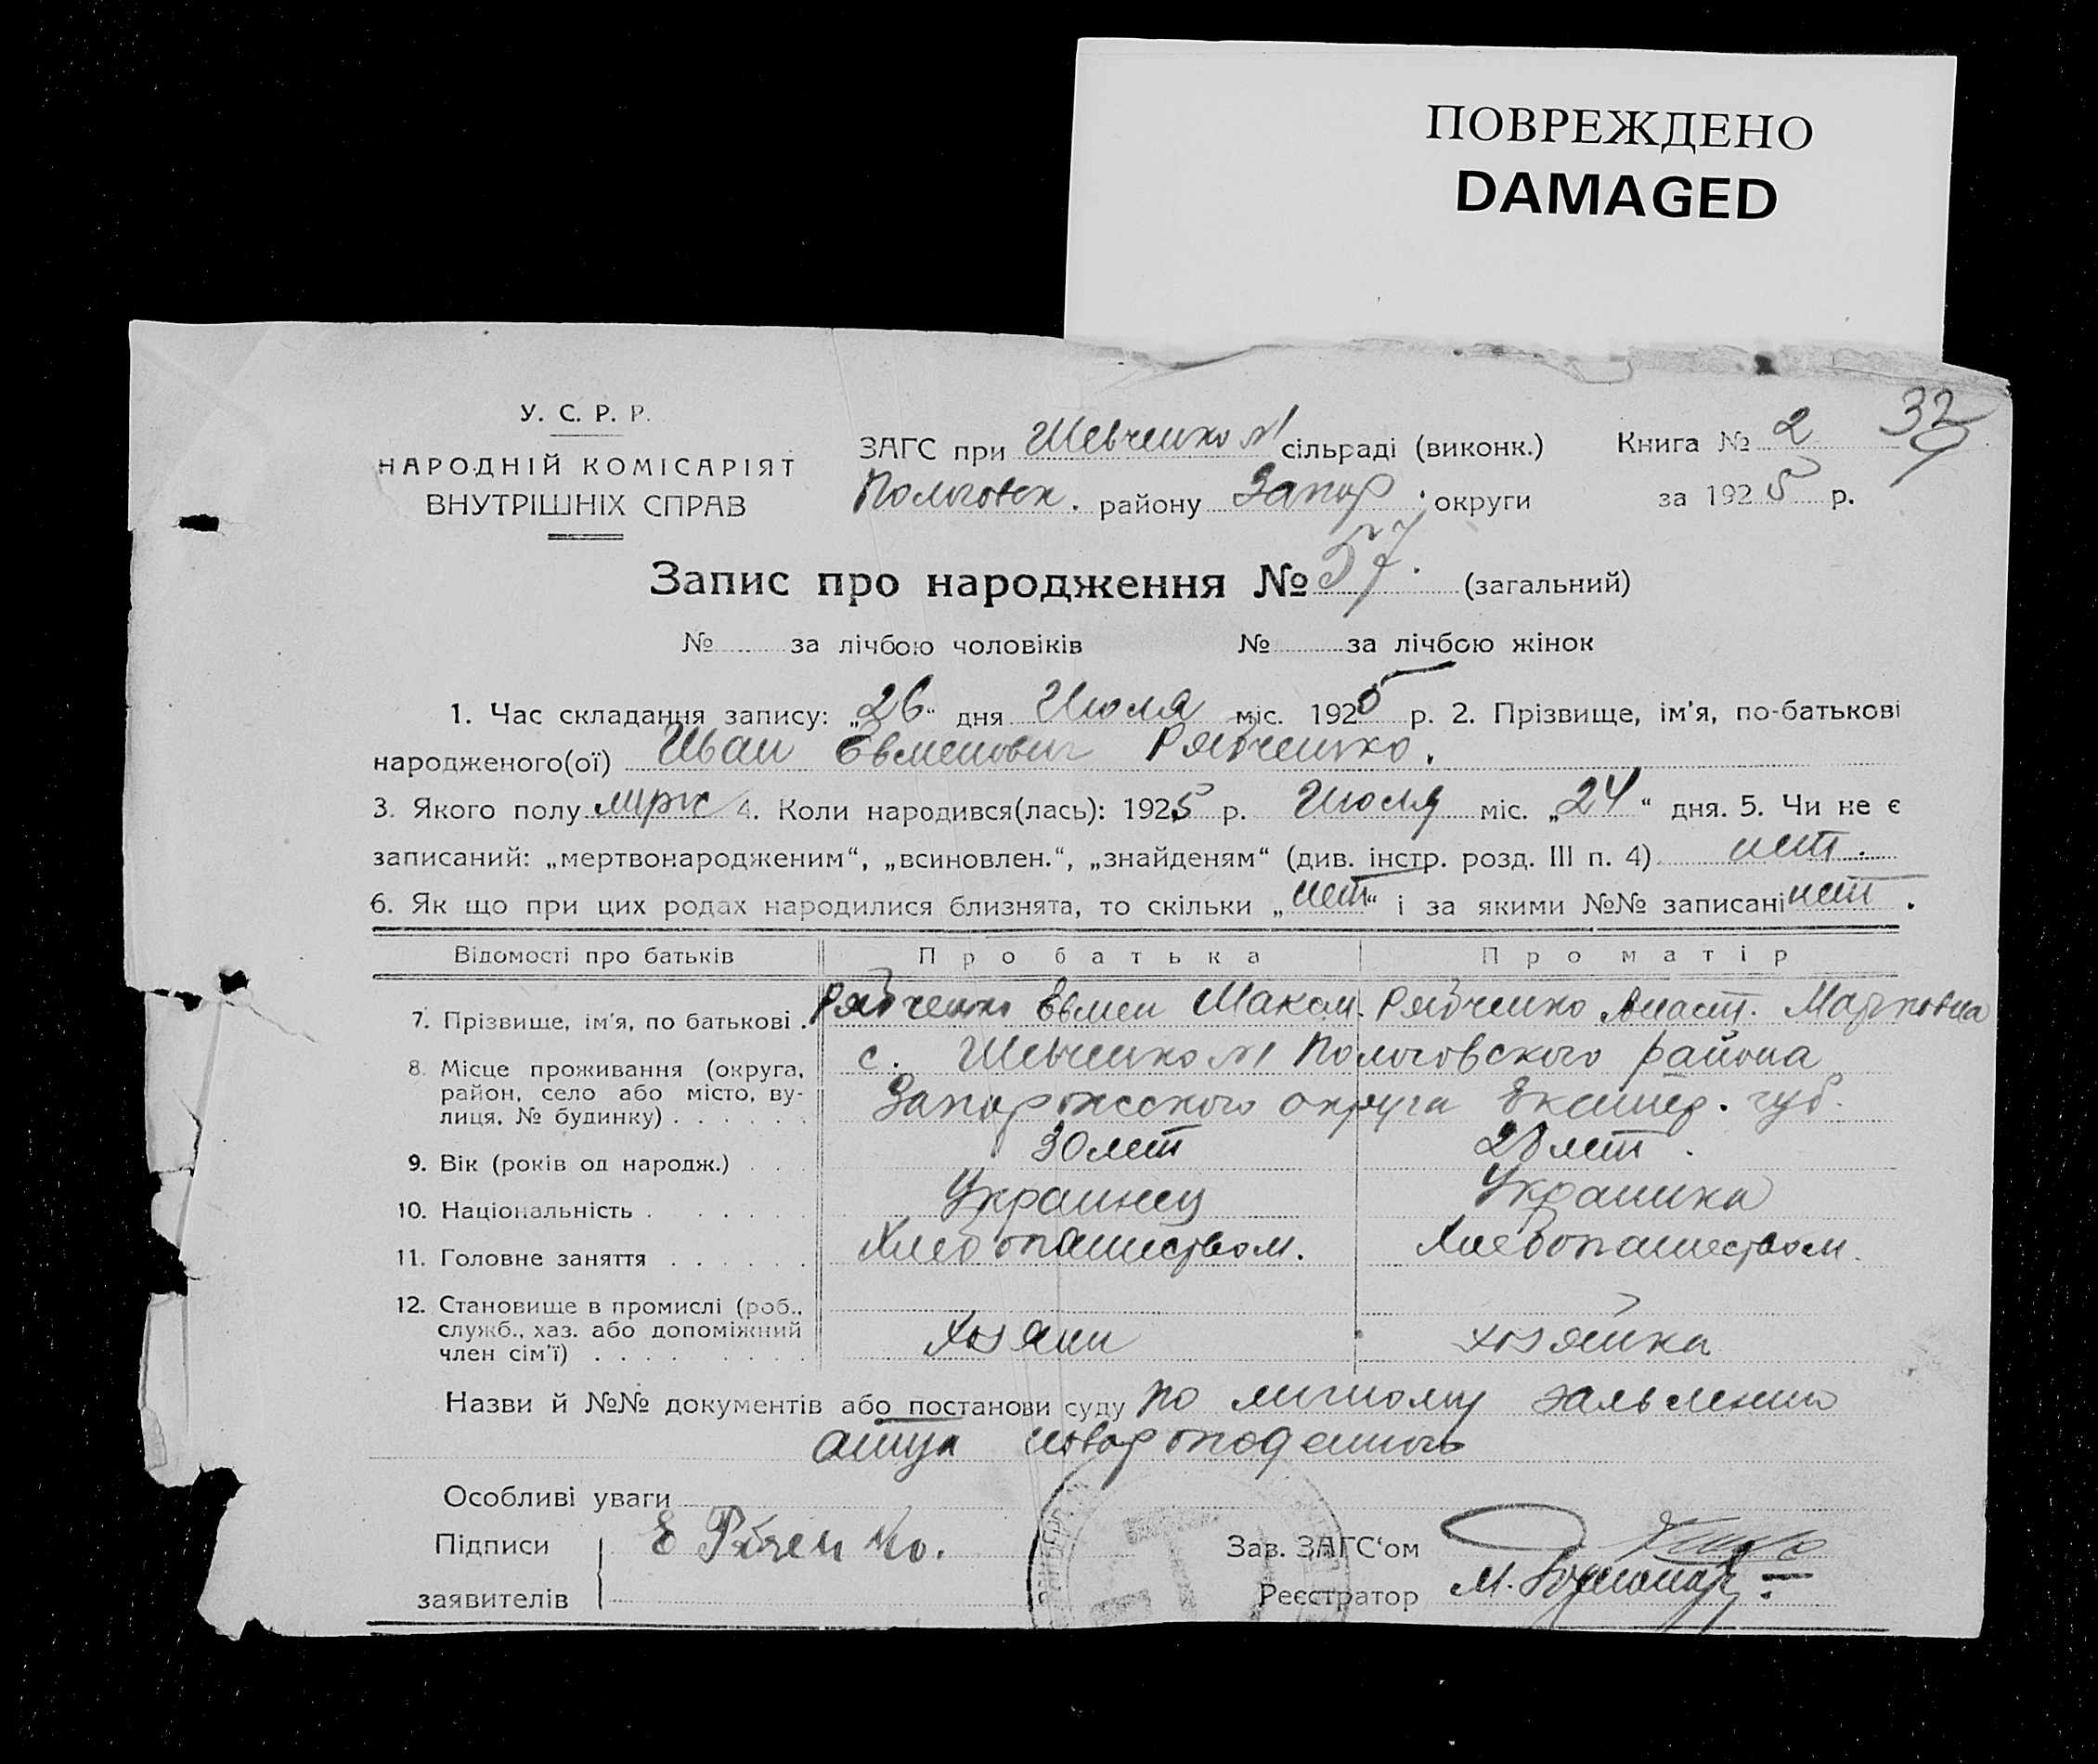 ПОВРЕЖДЕНО
DAMAGED
У. С. Р. Р.
НАРОДНІЙ КОМІСАРІЯТ
ВНУТРІШНІХ СПРАВ
ЗАГС при Шевченко №1 сільраді (виконк.)
Пологовск. району Запор. округи
Книга № 2 32
за 1925 р.
Запис про народження № 57. (загальний)
№ за лічбою чоловіків № за лічбою жінок
1. Час складання запису: „26“ дня Июля міс. 1925 р. 2. Прізвище, ім'я, по-батькові
народженого(ої) Иван Евменович Рябченко.
3. Якого полу муж 4. Коли народився(лась): 1925 р. Июля міс. „24“ дня. 5. Чи не є
записаний: „мертвонародженим“, „всиновлен.“, „знайденям“ (див. інстр. розд. III п. 4) нет.
6. Як що при цих родах народилися близнята, то скільки „нет“ і за якими №№ записані нет.
Відомості про батьків Про батька Про матір
7. Прізвище, ім'я, по батькові . Рябченко Евмен Макам. Рябченко Анаст. Марковна
8. Місце проживання (округа, с. Шевченко №1 Пологовского района
район, село або місто, ву- Запорожского округа Екатер. губ.
лиця, № будинку) . . . . . .
9. Вік (років од народж.) . . 30 лет 28 лет.
10. Національність . . . . . . Украинец Украинка
11. Головне заняття . . . . . . Хлебопашеством. Хлебопашеством.
12. Становище в промислі (роб.,
служб., хаз. або допоміжний Хозяин хозяйка
член сім'ї) . . . . . . . .
Назви й №№ документів або постанови суду по личному заявлению
отца новорожденного
Особливі уваги
Підписи Е Рбченко. Зав. ЗАГС'ом
заявителів Реєстратор М.